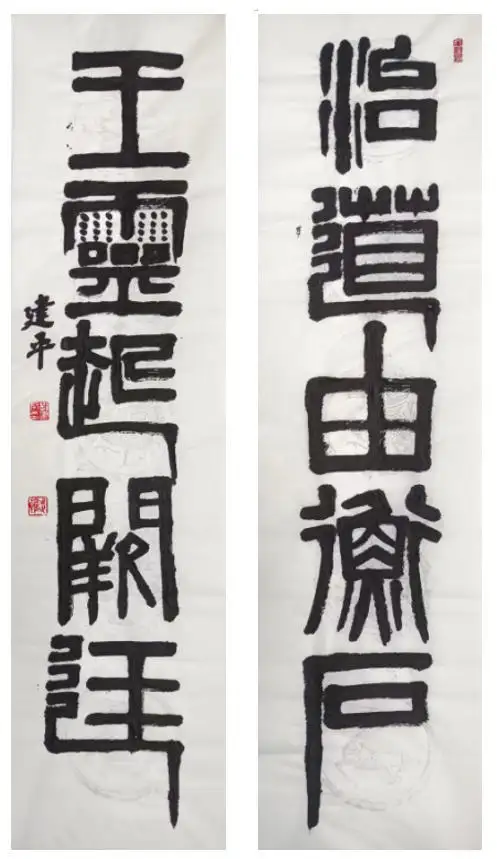 治道由衡石
王靈起闕廷
建平